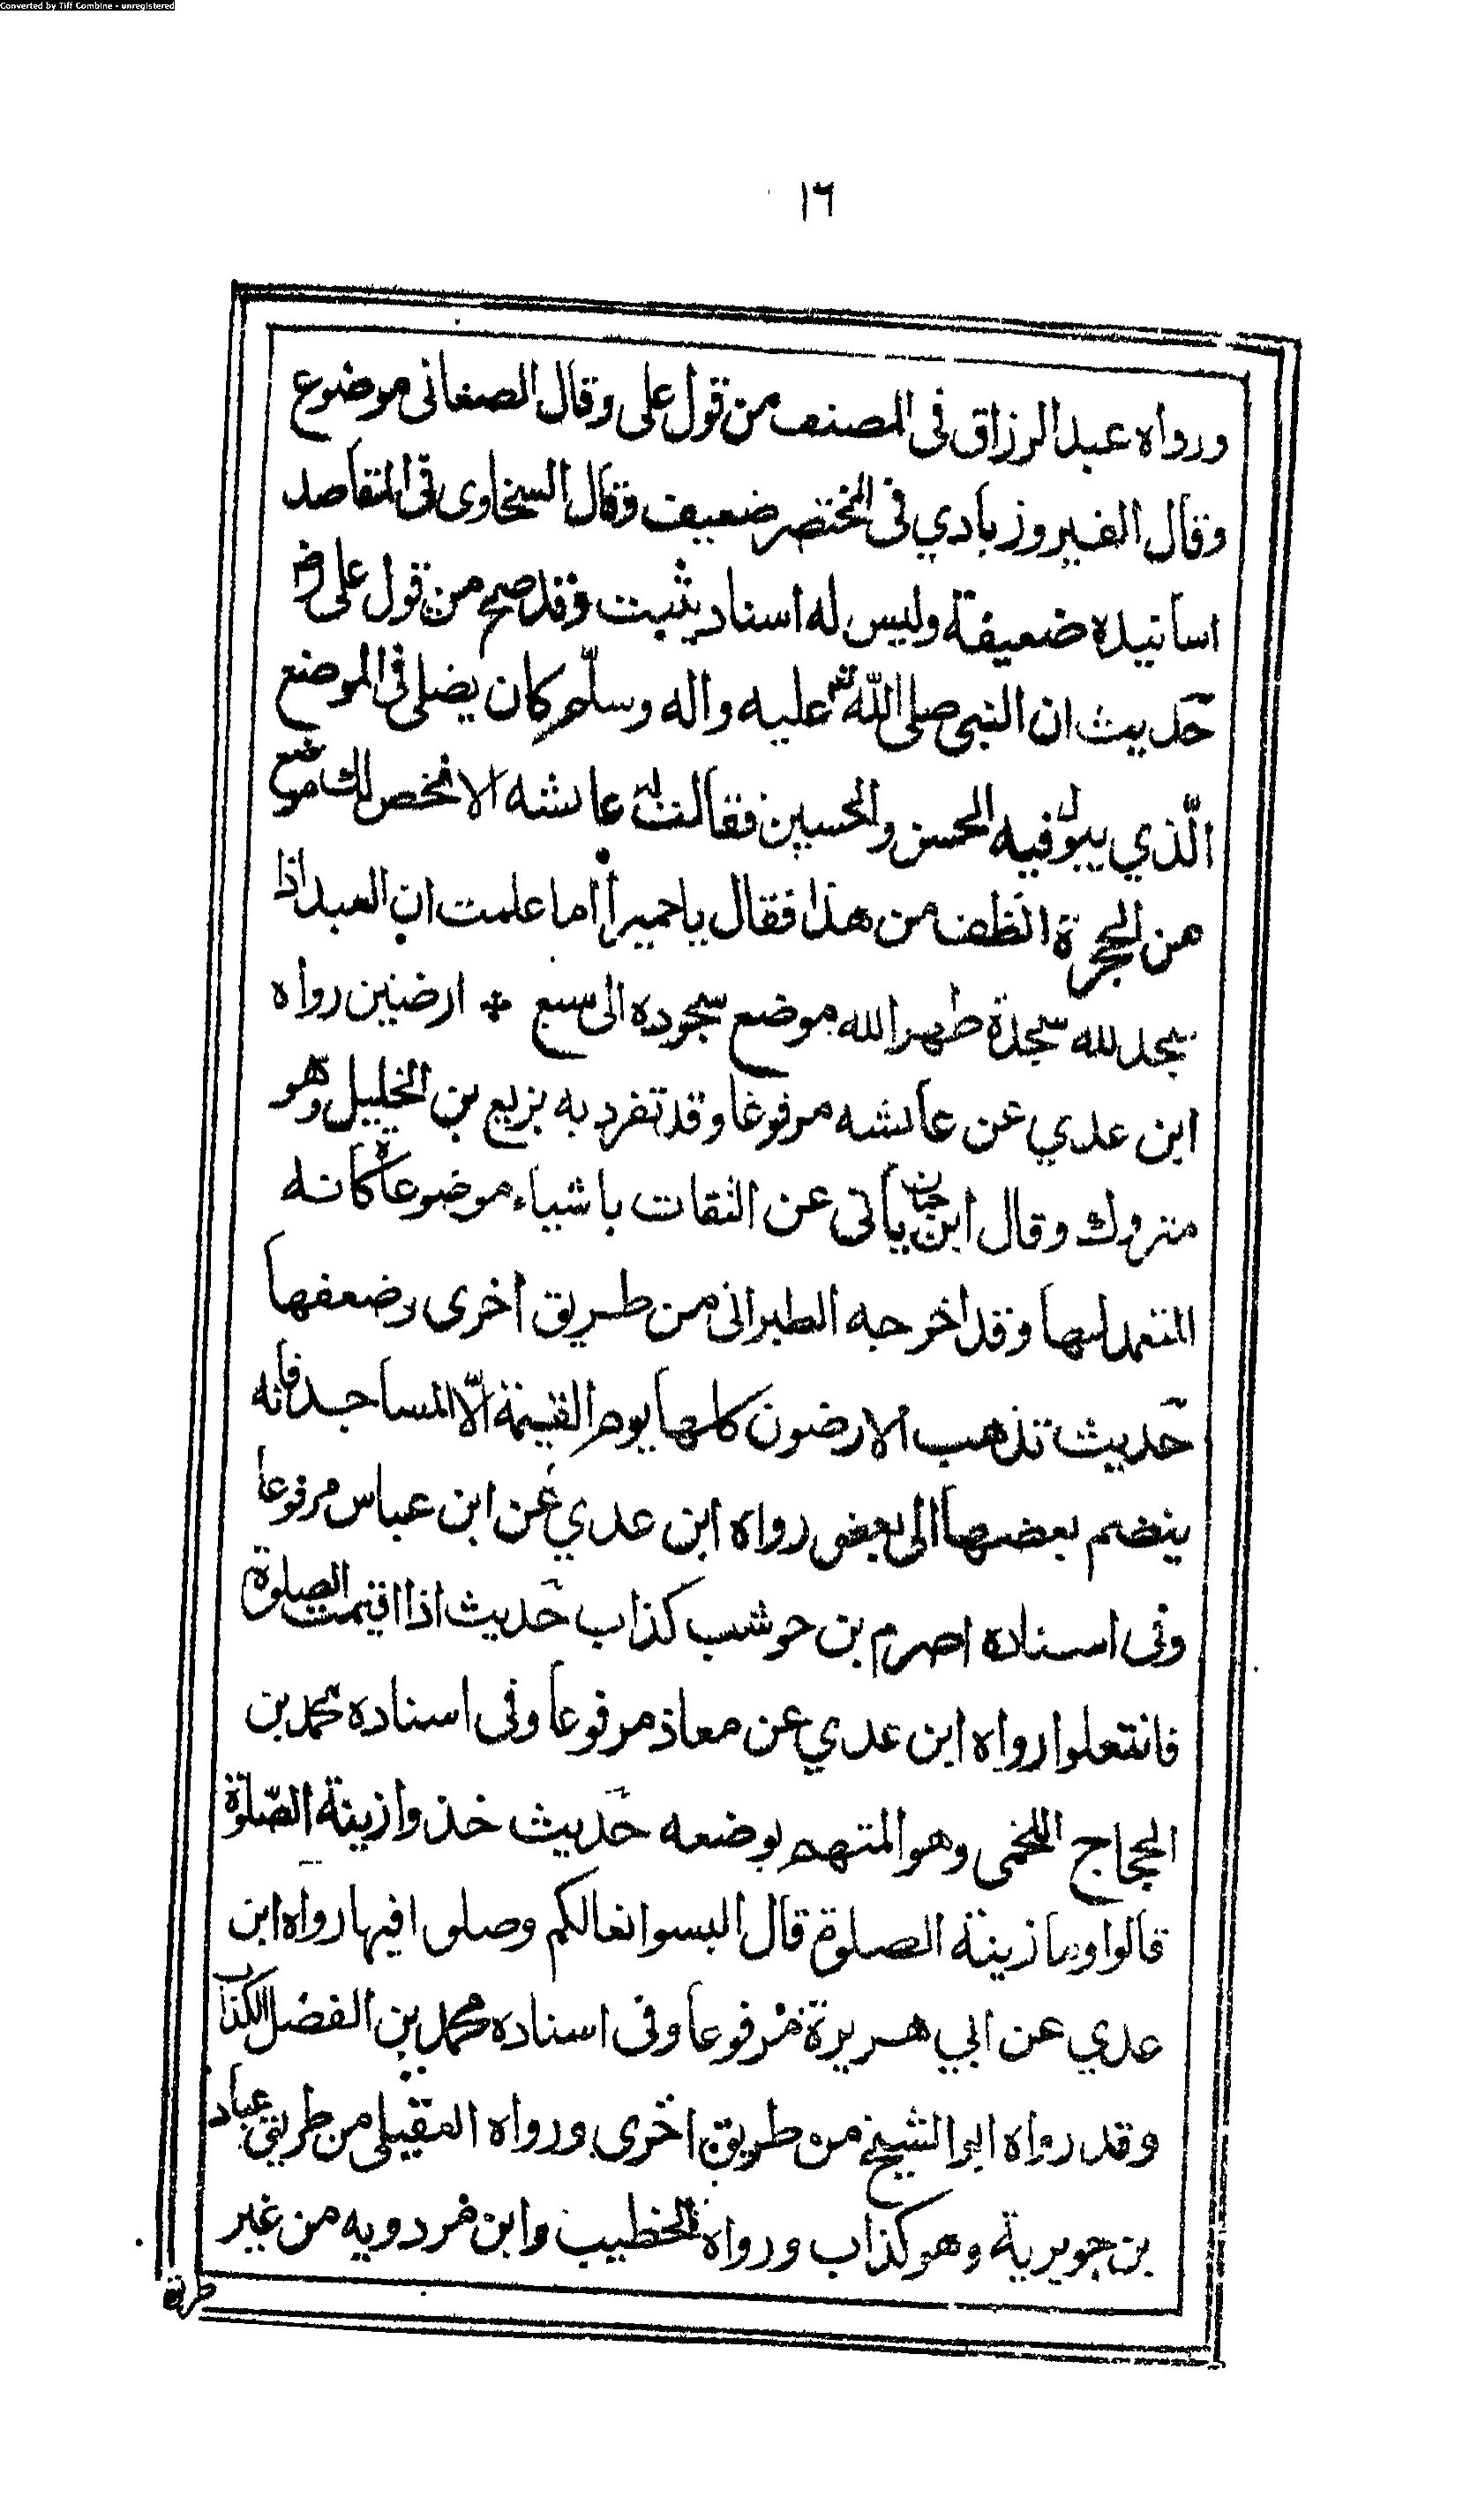 Converted by Tiff Combine - unregistered
١٦
ورواه عبد الرزاق فى المصنف من قول على وقال الصغانى موضوع
وقال الفيروزبادي فى المختصر ضعيف وقال السخاوى فى المقاصد
اسانيده ضعيفة وليس له اسناد يثبت وقد صح من قول على رض
حديث ان النبى صلى الله عليه واله وسلم كان يصلى فى الموضع
الّذي يبول فيه الحسن والحسين فقالت عائشه الا نخص لك موضع
من الحجرة انظف من هذا فقال يا حميرا أما علمت ان العبد اذا
سجد لله سجدة طهر الله موضع سجوده الى سبع * ارضين رواه
ابن عدي عن عائشه مرفوعا وقد تفرد به بزيع بن الخليل وهو
متروك وقال ابن حبان يأتى عن الثقات باشياء موضوعة كانه
المتعمد لها وقد اخرجه الطبرانى من طريق اخرى وضعفها
حديث تذهب الارضون كلها يوم القيمة الّا المساجد فانه
ينضم بعضها الى بعض رواه ابن عدي عن ابن عباس مرفوعا
وفى اسناده اصرم بن حوشب كذاب حديث اذا اقيمت الصلوة
فانتعلوا رواه ابن عدي عن معاذ مرفوعا وفى اسناده محمد بن
الحجاج اللخمى وهو المتهم بوضعه حديث خذوا زينة الصّلوة
قالوا وما زينة الصلوة قال البسوا نعالكم وصلوا فيها رواه ابن
عدي عن ابي هريرة مرفوعا وفى اسناده محمد بن الفضل الكذاب
وقد رواه ابو الشيخ من طريق اخرى ورواه العقيلى من طريق عباد
بن جويرية وهو كذاب ورواه الخطيب وابن مردويه من غير
طرية